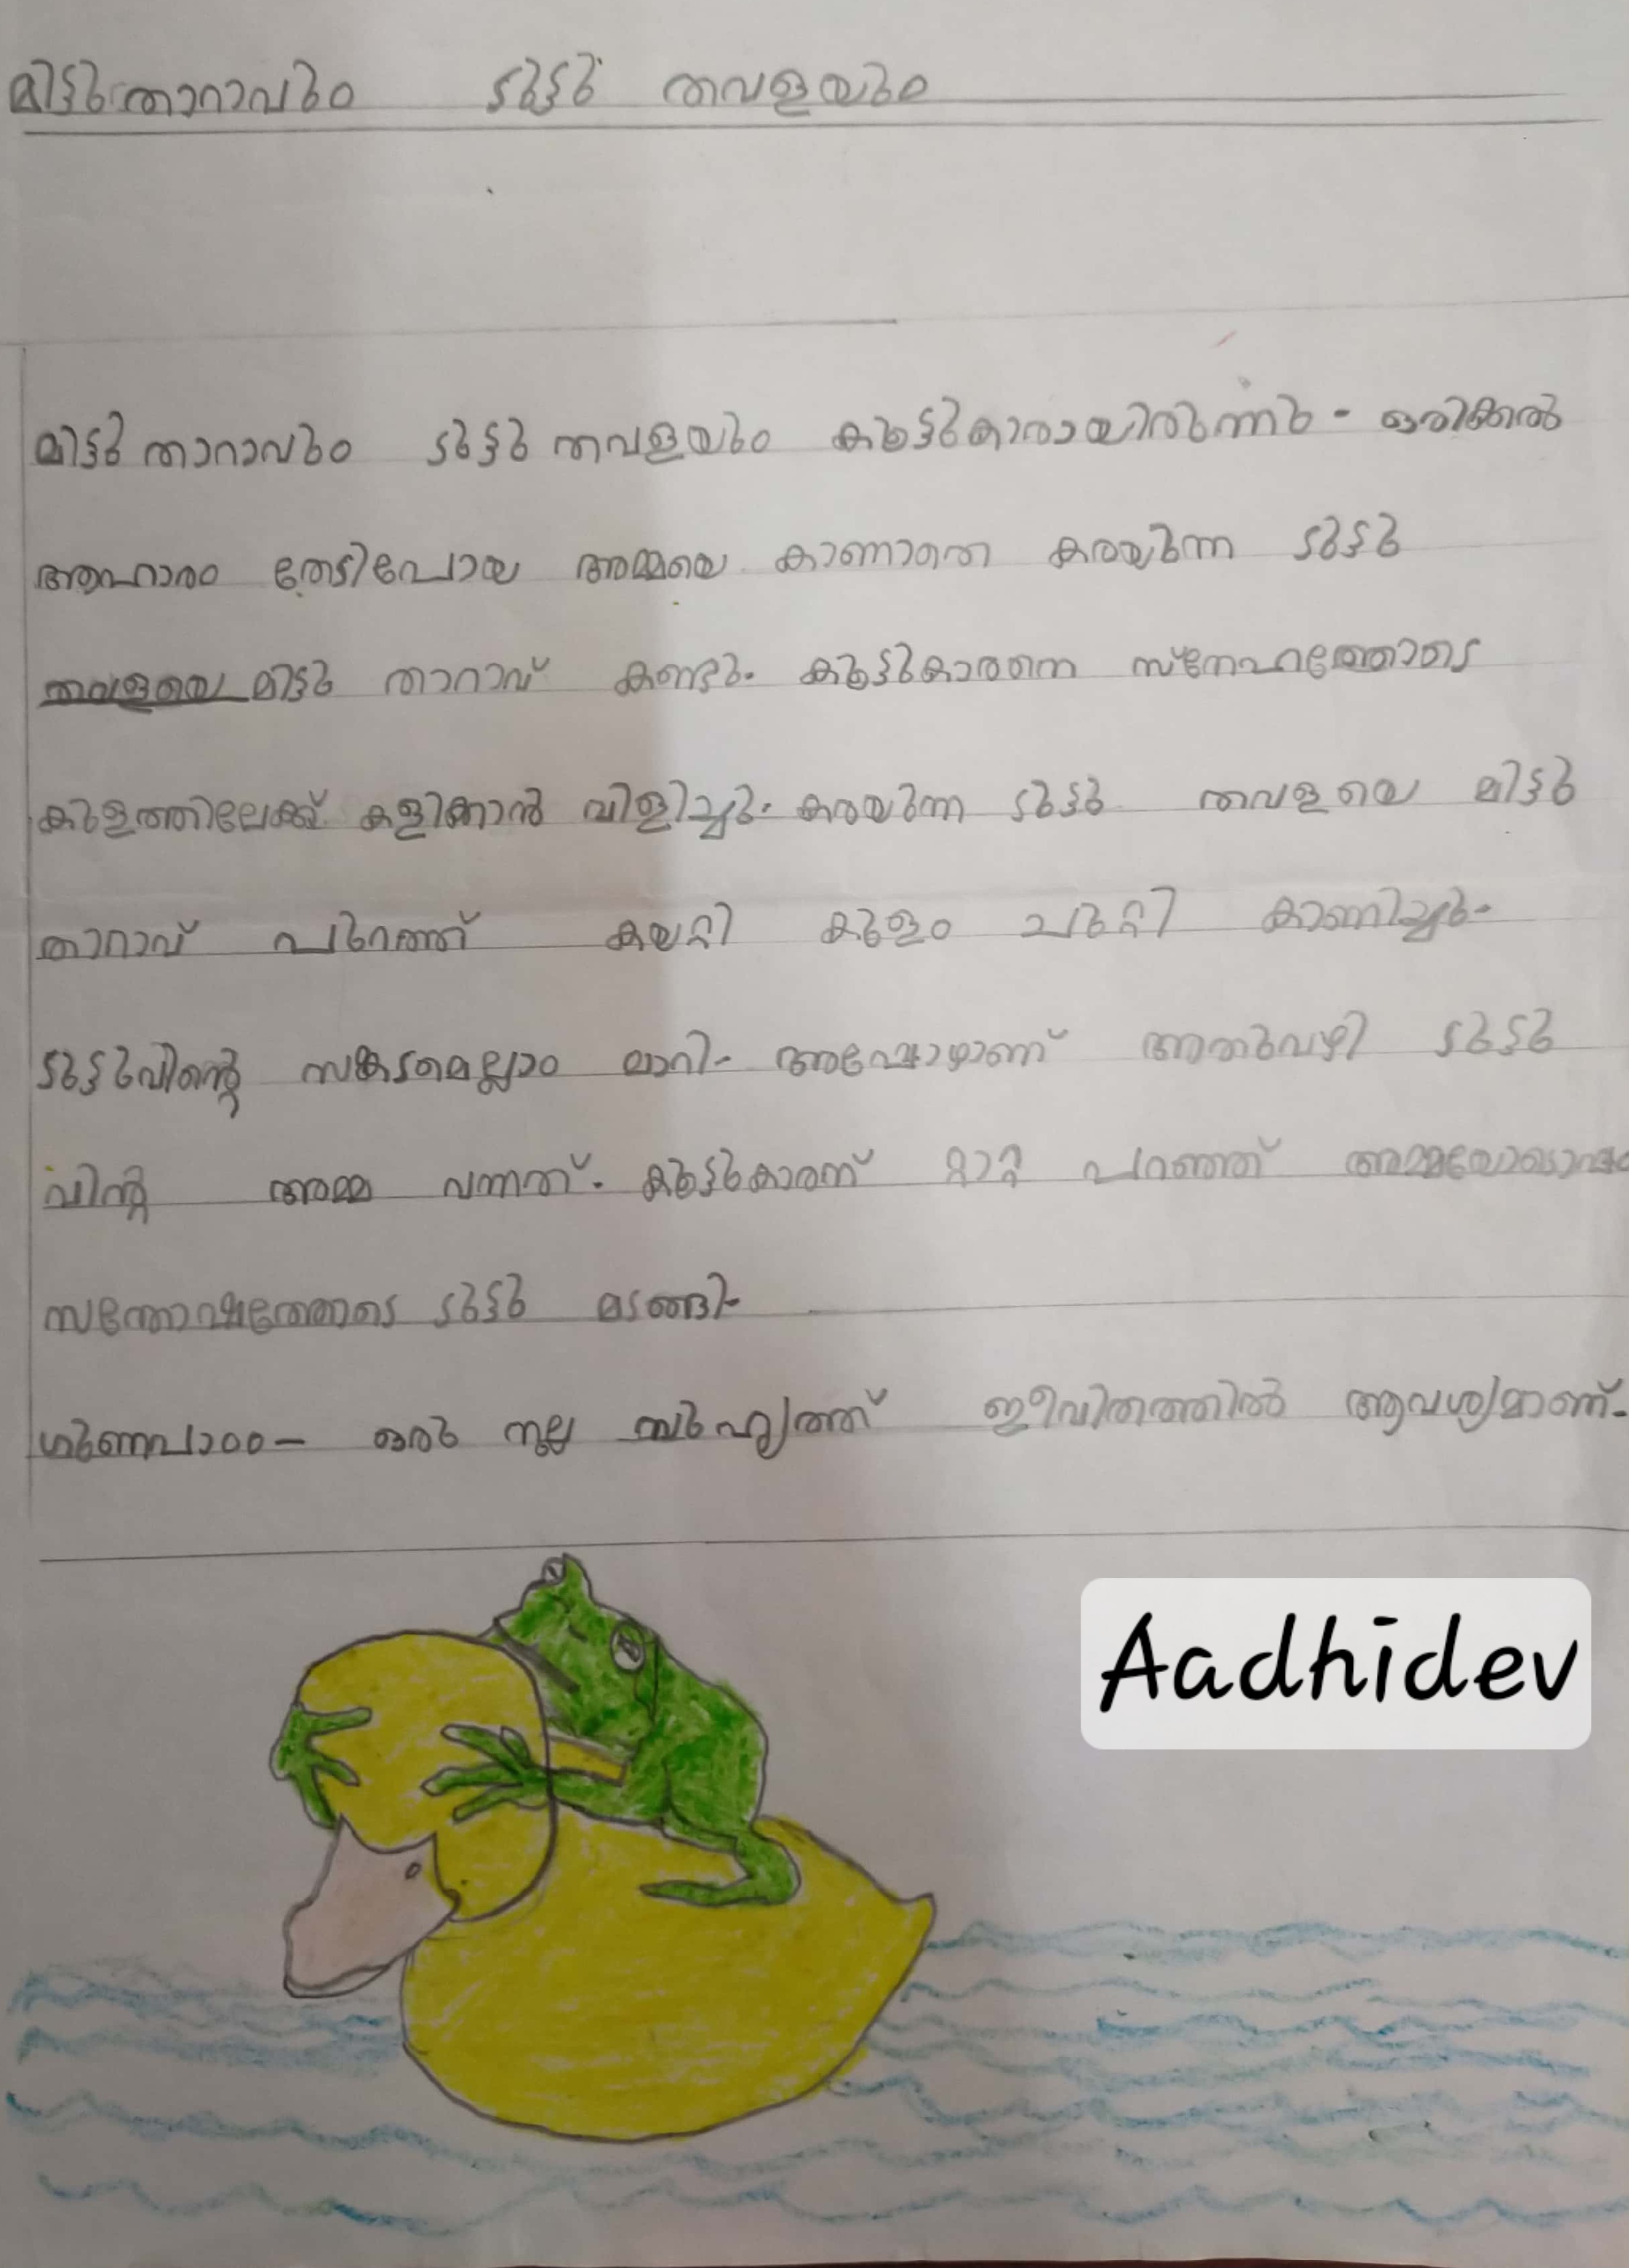 മിട്ടു താറാവും ടുട്ടു തവളയും
മിട്ടു താറാവും ടുട്ടു തവളയും കൂട്ടുകാരായിരുന്നു - ഒരിക്കൽ
ആഹാരം തേടിപോയ അമ്മയെ കാണാതെ കരയുന്ന ടുട്ടു
തവളയെ മിട്ടു താറാവ് കണ്ടു. കൂട്ടുകാരനെ സ്നേഹത്തോടെ
കുളത്തിലേക്ക് കളിക്കാൻ വിളിച്ചു. കരയുന്ന ടുട്ടു തവളയെ മിട്ടു
താറാവ് പുറത്ത് കയറ്റി കുളം ചുറ്റി കാണിച്ചു.
ടുട്ടുവിന്റെ സങ്കടമെല്ലാം മാറി. അപ്പോഴാണ് അതുവഴി ടുട്ടു
വിന്റ അമ്മ വന്നത്. കൂട്ടുകാരന് റ്റാറ്റ പറഞ്ഞ് അമ്മയോടൊപ്പം
സന്തോഷത്തോടെ ടുട്ടു മടങ്ങി.
ഗുണപാഠം - ഒരു നല്ല സുഹൃത്ത് ജീവിതത്തിൽ ആവശ്യമാണ്.
Aadhidev